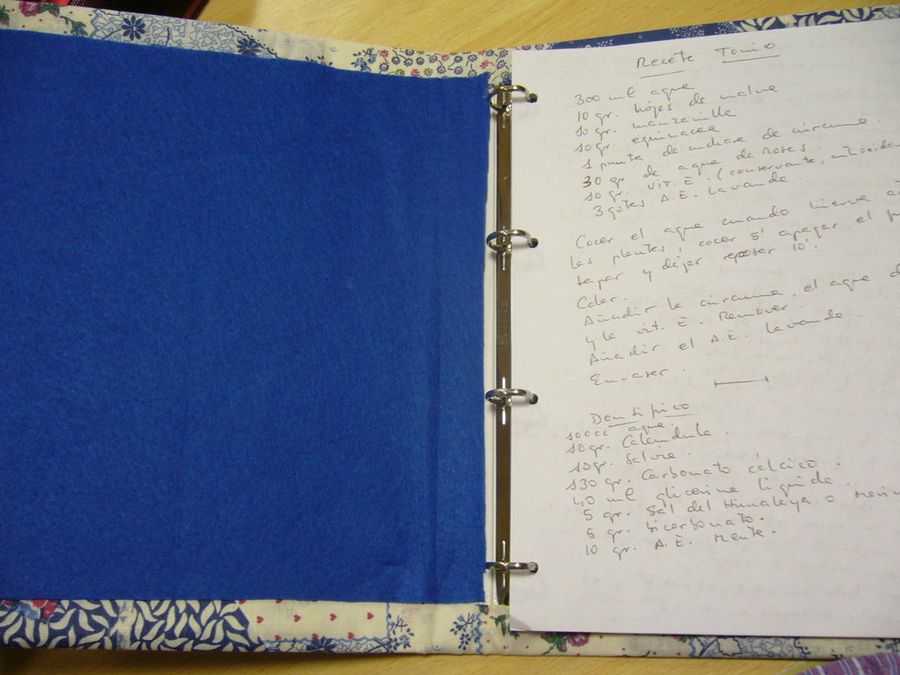 Receta Tonico
300 ml agua
10 gr. hojas de malva
10 gr. manzanilla
10 gr. equinacea
1 punta de cuchara de cúrcuma.
30 gr. de agua de rosas.
10 gr. vit. E. (conservante, antioxidan
3 gotas A.E. lavanda.
Cocer el agua cuando hierva añ
las plantas, cocer 5' apagar el
tapar y dejar reposar 10'.
Colar.
Añadir la cúrcuma, el agua d
y la vit. E. Remover.
Añadir el A.E. lavanda.
Envasar.
Dentífrico
100cc agua.
10 gr. Caléndula.
10 gr. Salvia.
130 gr. Carbonato cálcico.
40 ml glicerina líquida.
5 gr. Sal del Himalaya o Marin
5 gr. bicarbonato.
10 gr. A.E. Menta.